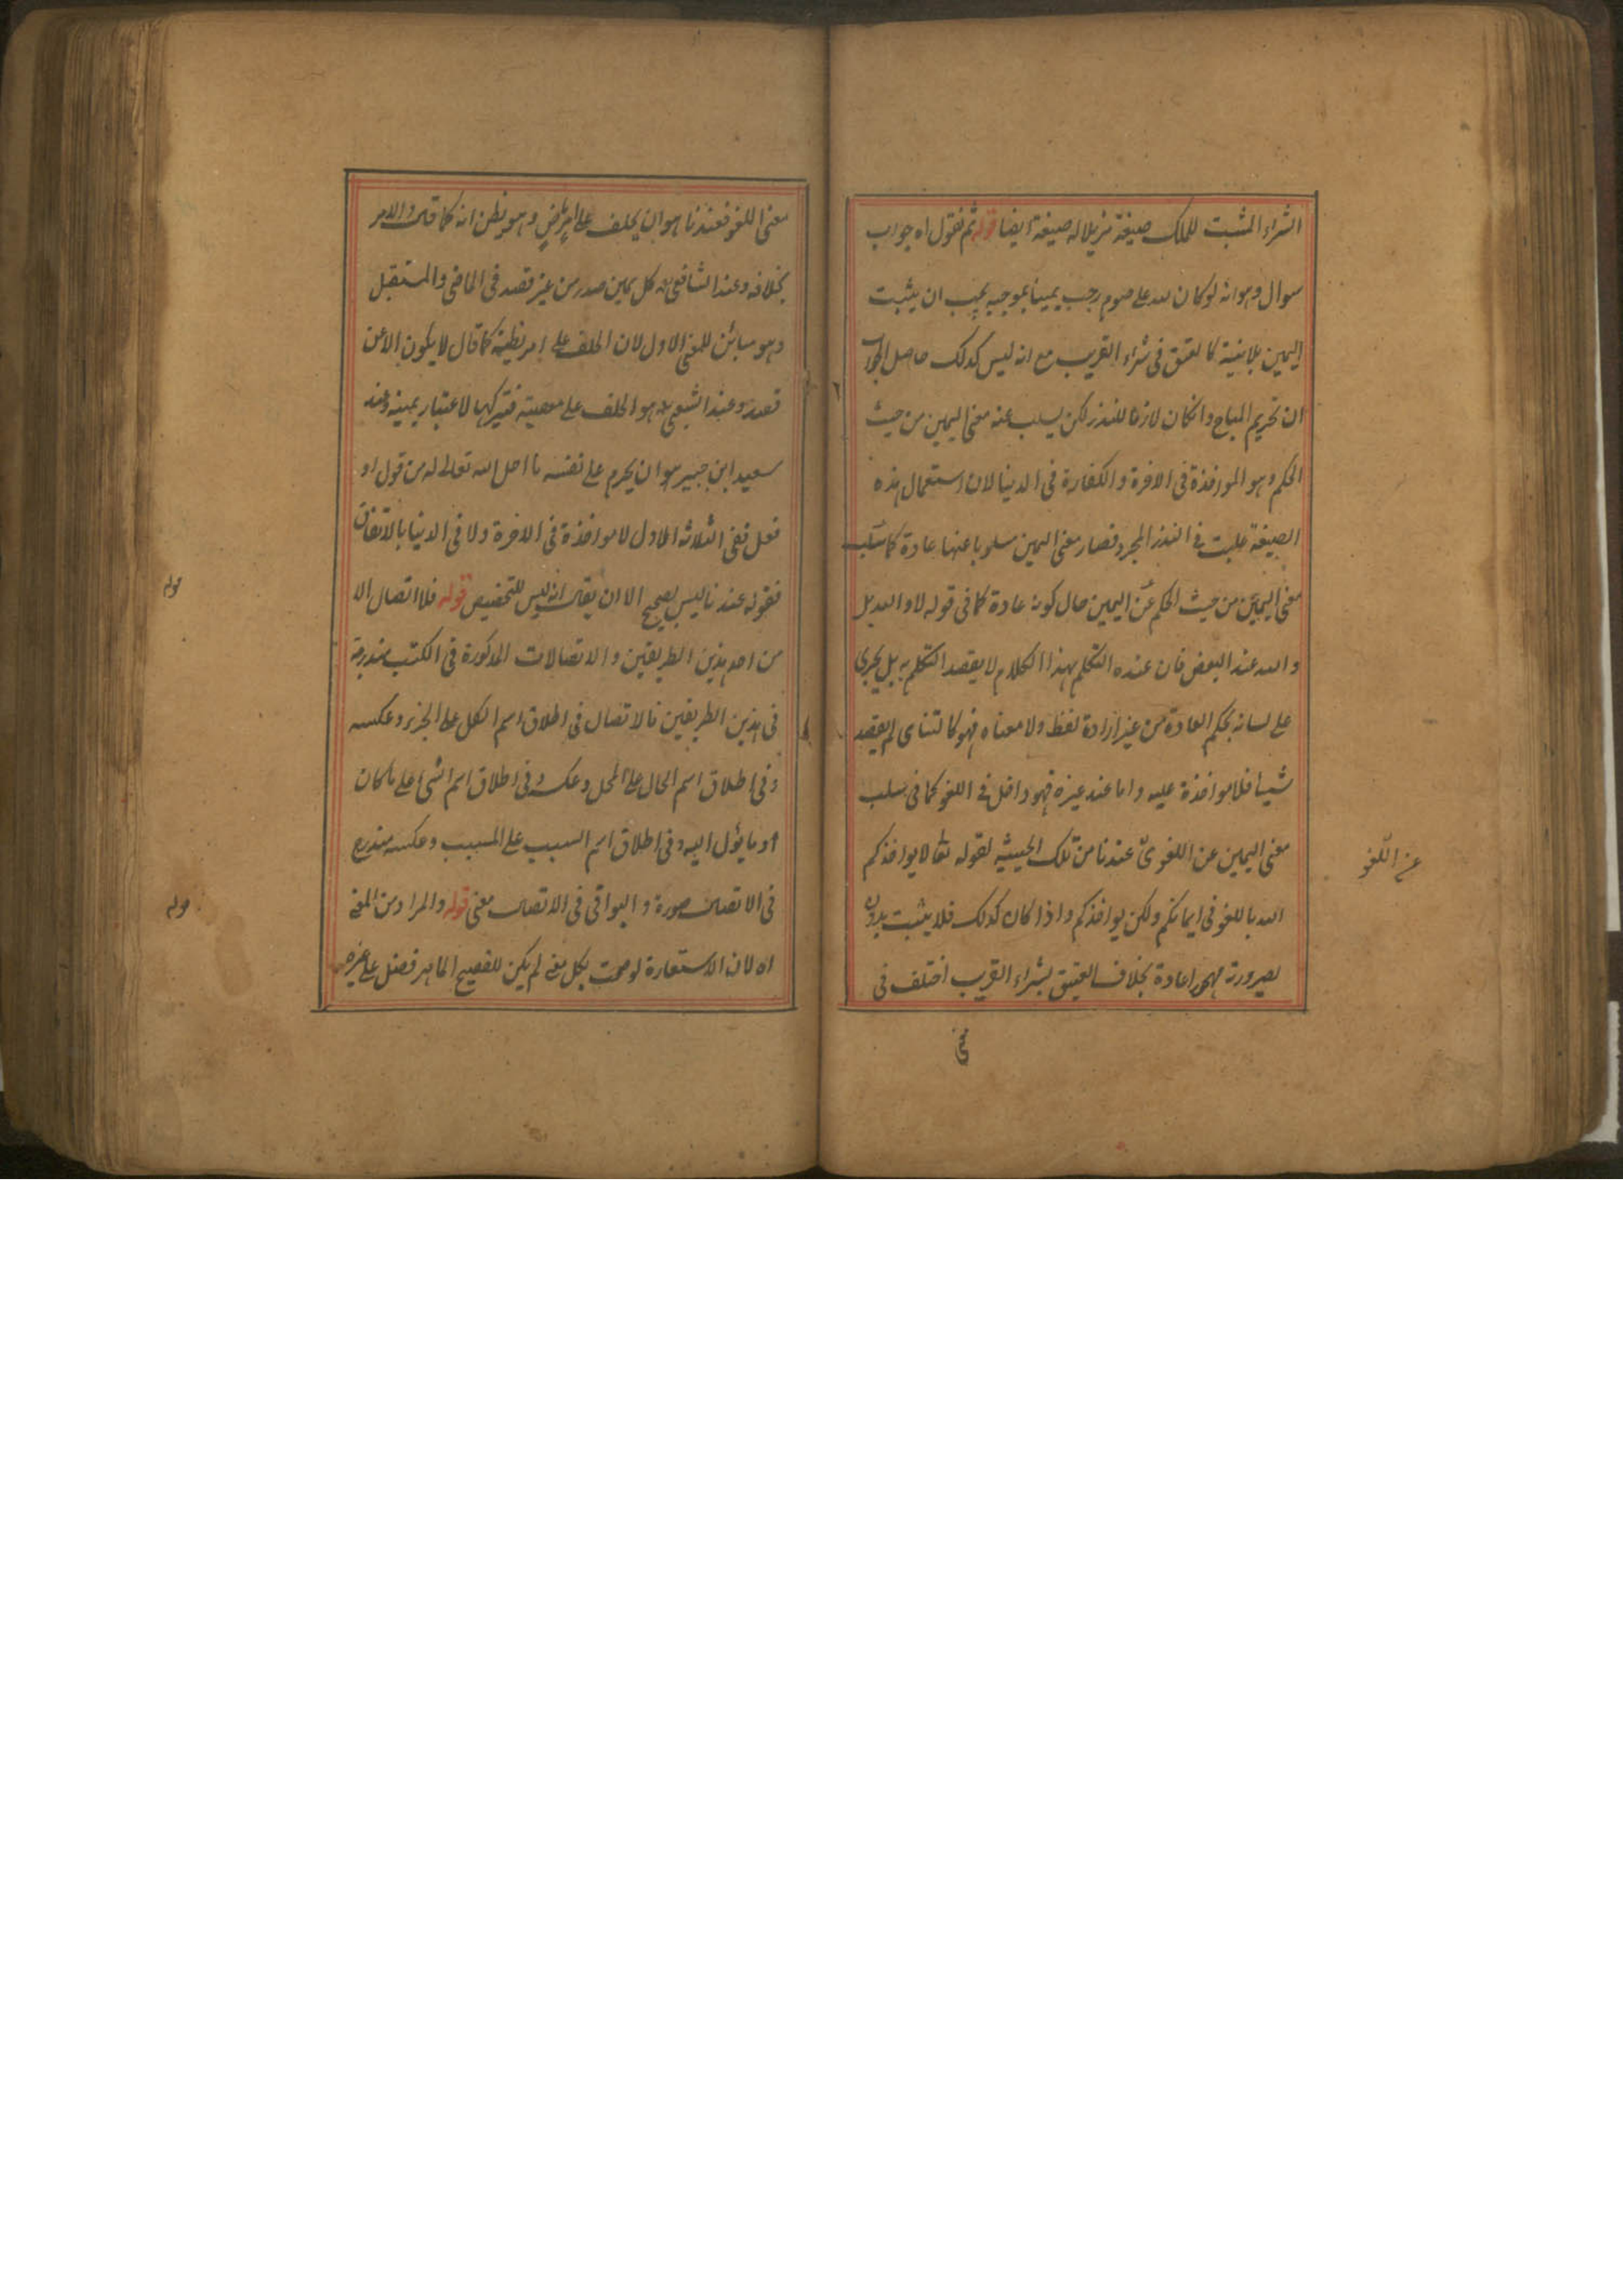 الشراء المثبت للملك صيغة مزيلا له صيغة ايضا قوله ثم نقول اه جواب
سوال وهو انه لو كان لله علي صوم رجب يمينا بموجبه يجب ان يثبت
اليمين بلا نية كالعتق في شراء القريب مع انه ليس كذلك حاصل الجواب
ان تحريم المباح وانكان لازما للنذر لكن يسلب عنه معنى اليمين من حيث
الحكم وهو المواخذة في الاخرة والكفارة في الدنيا لان استعمال هذه
الصيغة غلبت في النذر المجرد فصار معنى اليمين مسلوبا عنها عادة كما سلب
معنى اليمين من حيث الحكم عن اليمين حال كونه عادة كما في قوله لا والله بلى
والله عند البعض فان عنده المتكلم بهذا الكلام لا يقصد التكلم به بل يجرى
على لسانه بحكم العادة من غير ارادة لفظ ولا معناه فهو كالتناسى لم يقصد
شيا فلا مواخذة عليه واما عند غيره فهو داخل في اللغو كما في سلب
معنى اليمين عن اللغوى عندنا من تلك الحيثية لقوله تعا لا يواخذكم
الله باللغو في ايمانكم ولكن يواخذكم واذا كان كذلك فلا يثبت بدون
لصيرورته مهجورا عادة بخلاف العتيق بشراء القريب اختلف في
عن اللغو
معنى
معنى اللغو فعندنا هو ان يحلف على امر ماض وهو يظن انه كما قال والامر
بخلافه وعند الشافعي رح كل يمين صدر من غير قصد في الماضي والمستقبل
وهو مبائن للمعنى الاول لان الحلف على امر يظنه كما قال لا يكون الا عن
قصد وعند الشعبي رح هو الحلف على معصية فتركها لا عتبار يمينه وعند
سعيد ابن جبير هو ان يحرم على نفسه ما احل الله تعالى له من قول او
فعل ففي الثلاثة الاول لا مواخذة في الاخرة ولا في الدنيا بالاتفاق
فقوله عندنا ليس بصحيح الا ان يقال انه ليس للتخصيص قوله فلا اتصال الا
من احد هذين الطريقين والاتصالات المذكورة في الكتب مندرجة
في هذين الطريقين فالاتصال في اطلاق اسم الكل على الجزء وعكسه
وفي اطلاق اسم الحال على المحل وعكسه وفي اطلاق اسم الشي على ما كان
او ما يؤل اليه وفي اطلاق اسم السبب على المسبب وعكسه مندرج
في الاتصال صورة والبواقي في الاتصال معنى قوله والمراد من المعنى
اه لان الاستعارة لو صحت بكل معنى لم يكن للفصيح الماهر فضل على غيره
قوله
قوله